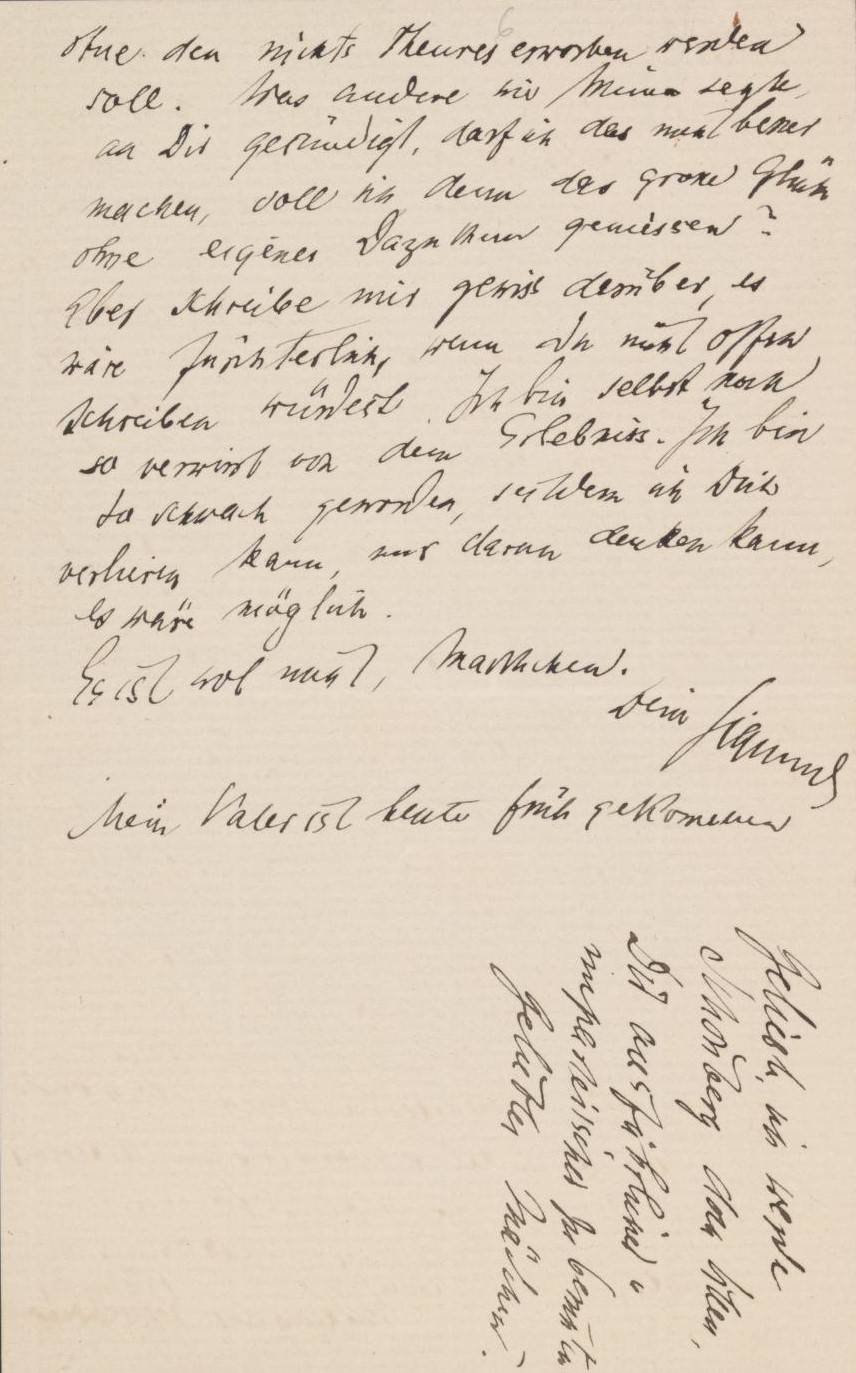 6
ohne den nichts Theures erworben werden
soll. Was andere wie Minna sagte,
an Dir gesündigt, darf ich das nicht besser
machen, soll ich denn das große Glück
ohne eigenes Dazuthun geniessen?
Aber schreibe mir gewiss darüber, es
wäre fürchterlich, wenn Du nicht offen
schreiben würdest. Ich bin selbst noch
so verwirrt von dem Erlebniss. Ich bin
so schwach geworden, seitdem ich Dich
verlieren kann, nur daran denken kann,
es wäre möglich.
Es ist wol nicht, Marthchen.
Dein Sigmund
Mein Vater ist heute früh gekommen
Geliebte, ich werde
Schönberg doch bitten,
Dir ausführlicher u
unparteiischer zu berichten
Geliebtes Mädchen.